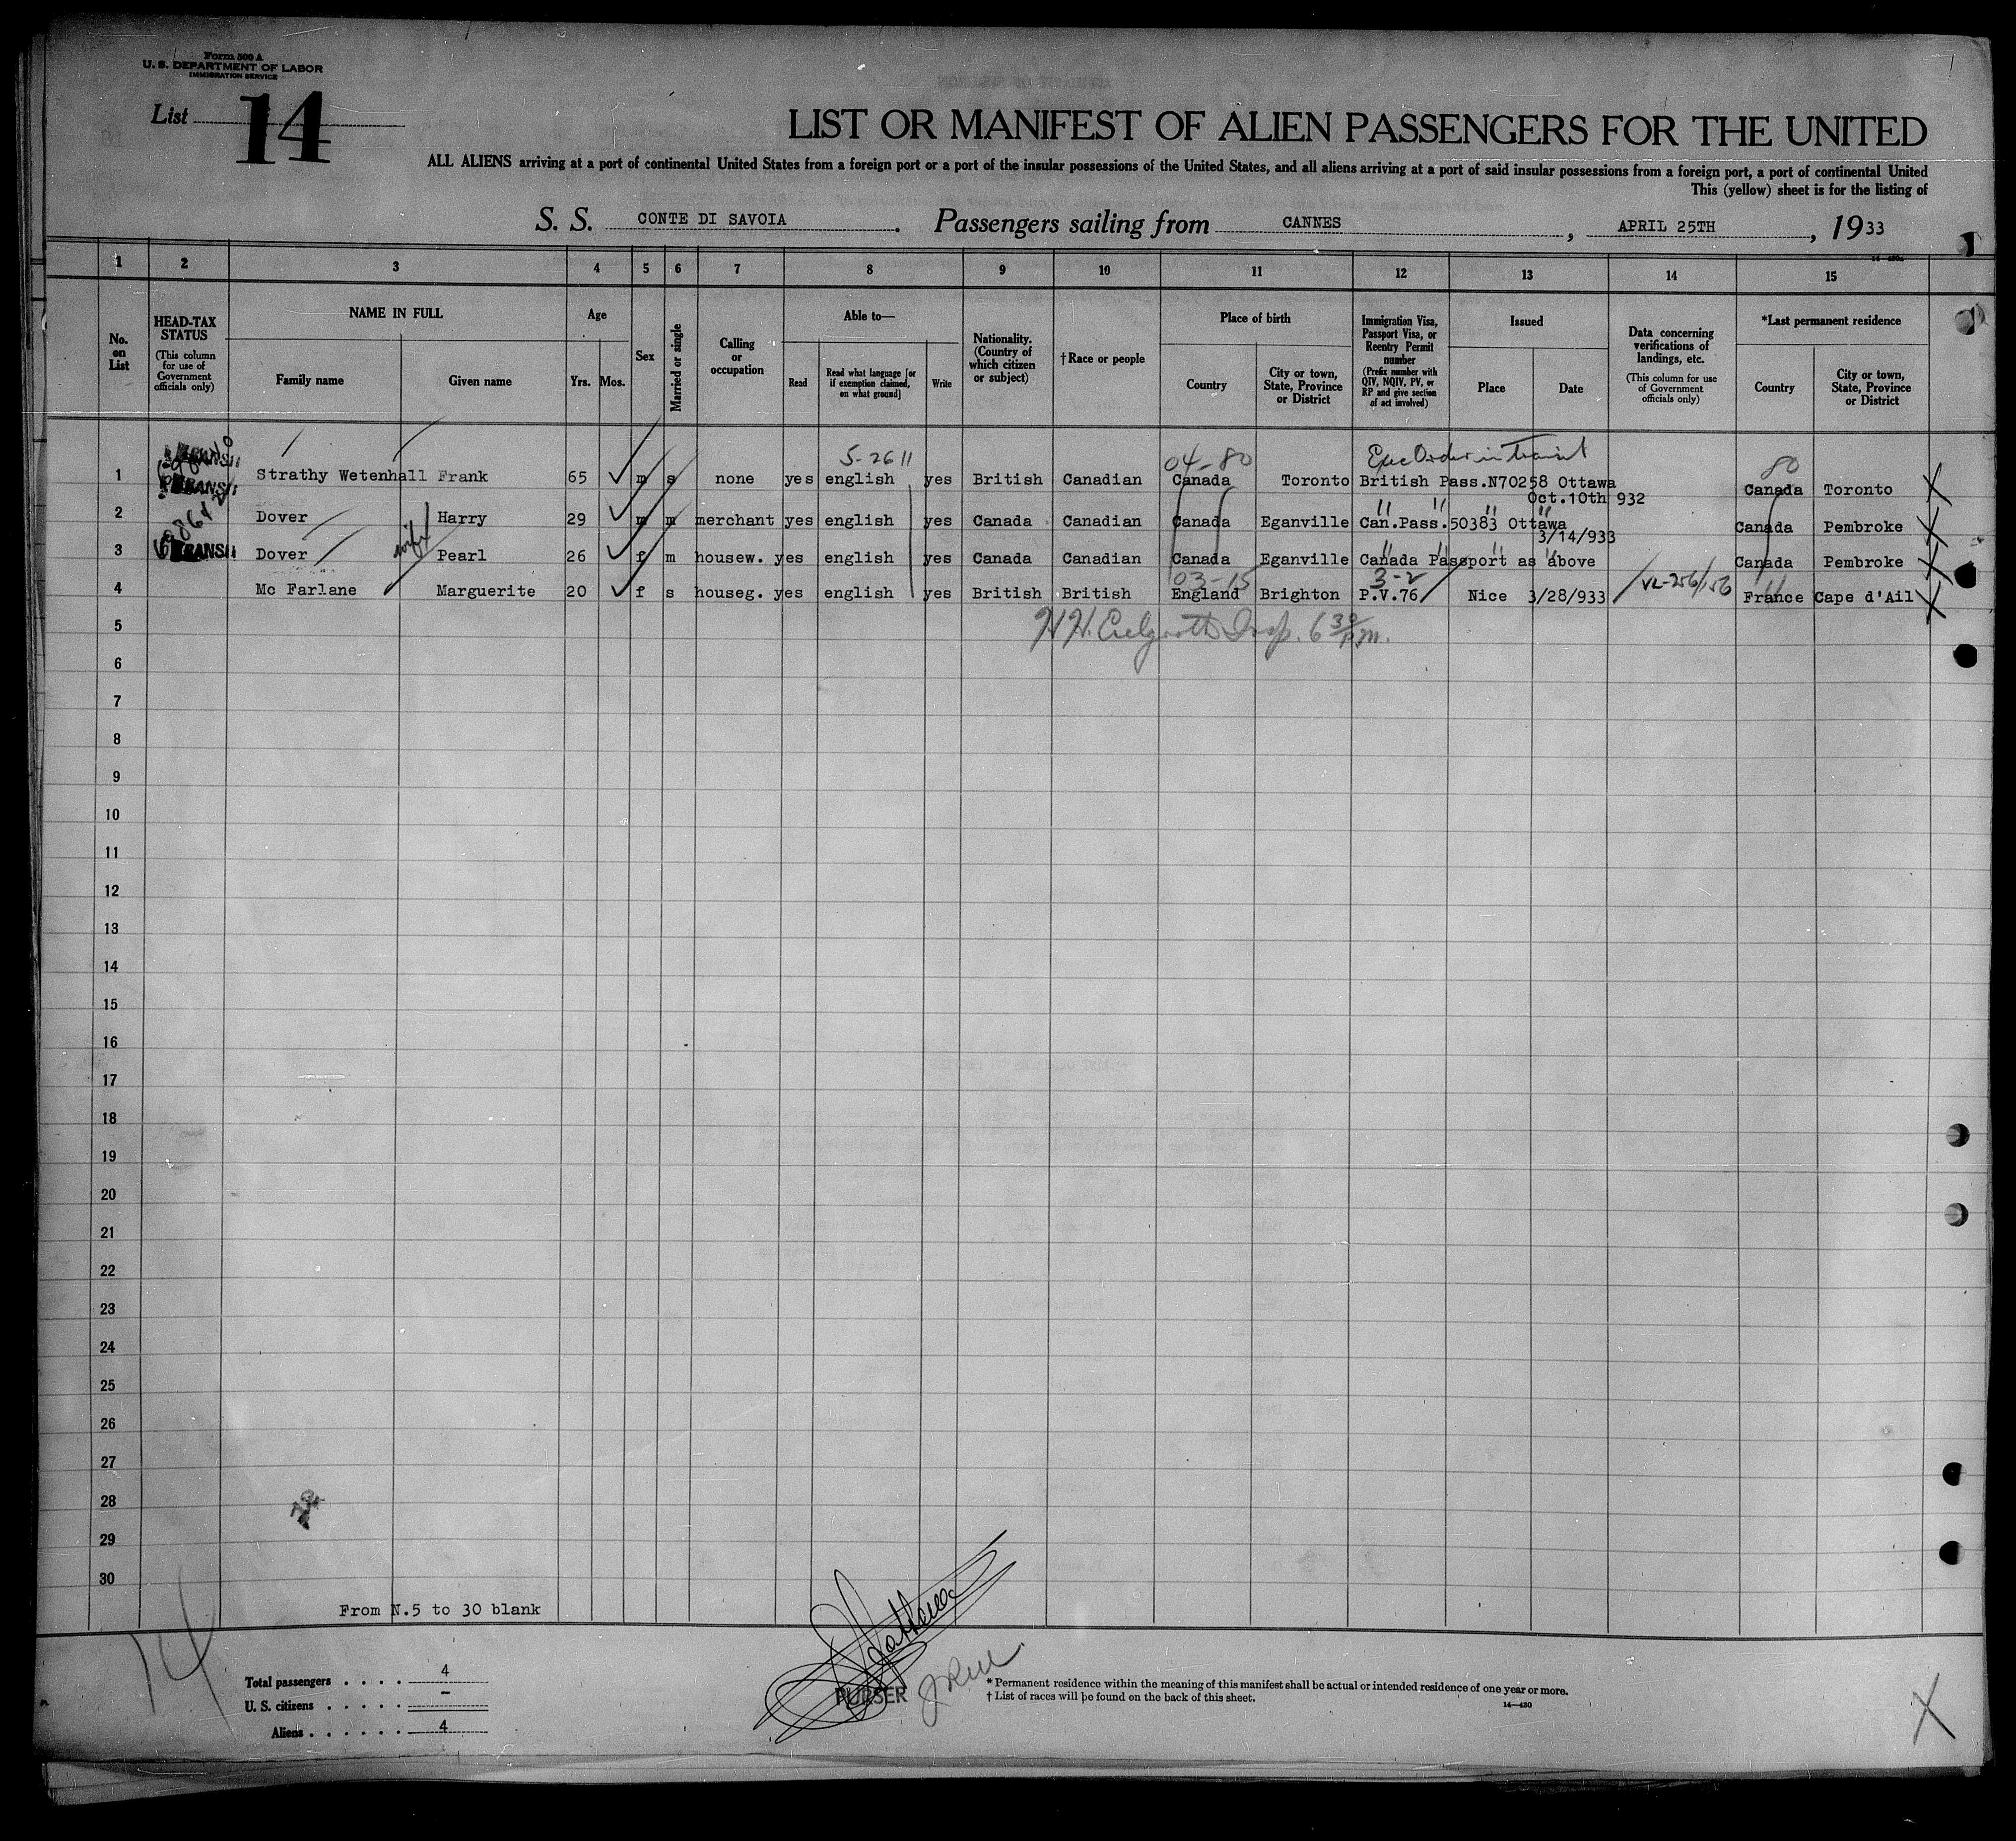 Form 500 A
U. S. DEPARTMENT OF LABOR
IMMIGRATION SERVICE
List 14
LIST OR MANIFEST OF ALIEN PASSENGERS FOR THE UNITED
ALL ALIENS arriving at a port of continental United States from a foreign port or a port of the insular possessions of the United States, and all aliens arriving at a port of said insular possessions from a foreign port, a port of continental United
This (yellow) sheet is for the listing of
S. S. CONTE DI SAVOIA. Passengers sailing from CANNES, APRIL 25TH, 1933
1 2 3 4 5 6 7 8 9 10 11 12 13 14 15
No. on List
HEAD-TAX STATUS (This column for use of Government officials only)
NAME IN FULL
Family name Given name
Age
Yrs. Mos.
Sex
Married or single
Calling or occupation
Able to—
Read Read what language [or if exemption claimed, on what ground] Write
Nationality. (Country of which citizen or subject)
†Race or people
Place of birth
Country City or town, State, Province or District
Immigration Visa, Passport Visa, or Reentry Permit number (Prefix number with QIV, NQIV, PV, or RP and give section of act involved)
Issued
Place Date
Data concerning verifications of landings, etc. (This column for use of Government officials only)
*Last permanent residence
Country City or town, State, Province or District
5-26 11 04-80 Exec Order in Transit 80
1 TRANSIT Strathy Wetenhall Frank 65 m s none yes english yes British Canadian Canada Toronto British Pass.N70258 Ottawa Canada Toronto
Oct.10th 932
2 Dover Harry 29 m m merchant yes english yes Canada Canadian Canada Eganville Can.Pass.50383 Ottawa Canada Pembroke
3/14/933
3 TRANSIT Dover wife Pearl 26 f m housew. yes english yes Canada Canadian Canada Eganville Canada Passport as above Canada Pembroke
03-15 3-2
4 Mc Farlane Marguerite 20 f s houseg. yes english yes British British England Brighton P.V.76 Nice 3/28/933 VL-256/156 France Cape d'Ail
5 H.H. Insp. 6 30 P.m.
6
7
8
9
10
11
12
13
14
15
16
17
18
19
20
21
22
23
24
25
26
27
28
29
30
From N.5 to 30 blank
14
Total passengers . . . . 4
U. S. citizens . . . . . –
Aliens . . . . . . 4
PURSER
* Permanent residence within the meaning of this manifest shall be actual or intended residence of one year or more.
† List of races will be found on the back of this sheet.
14—430